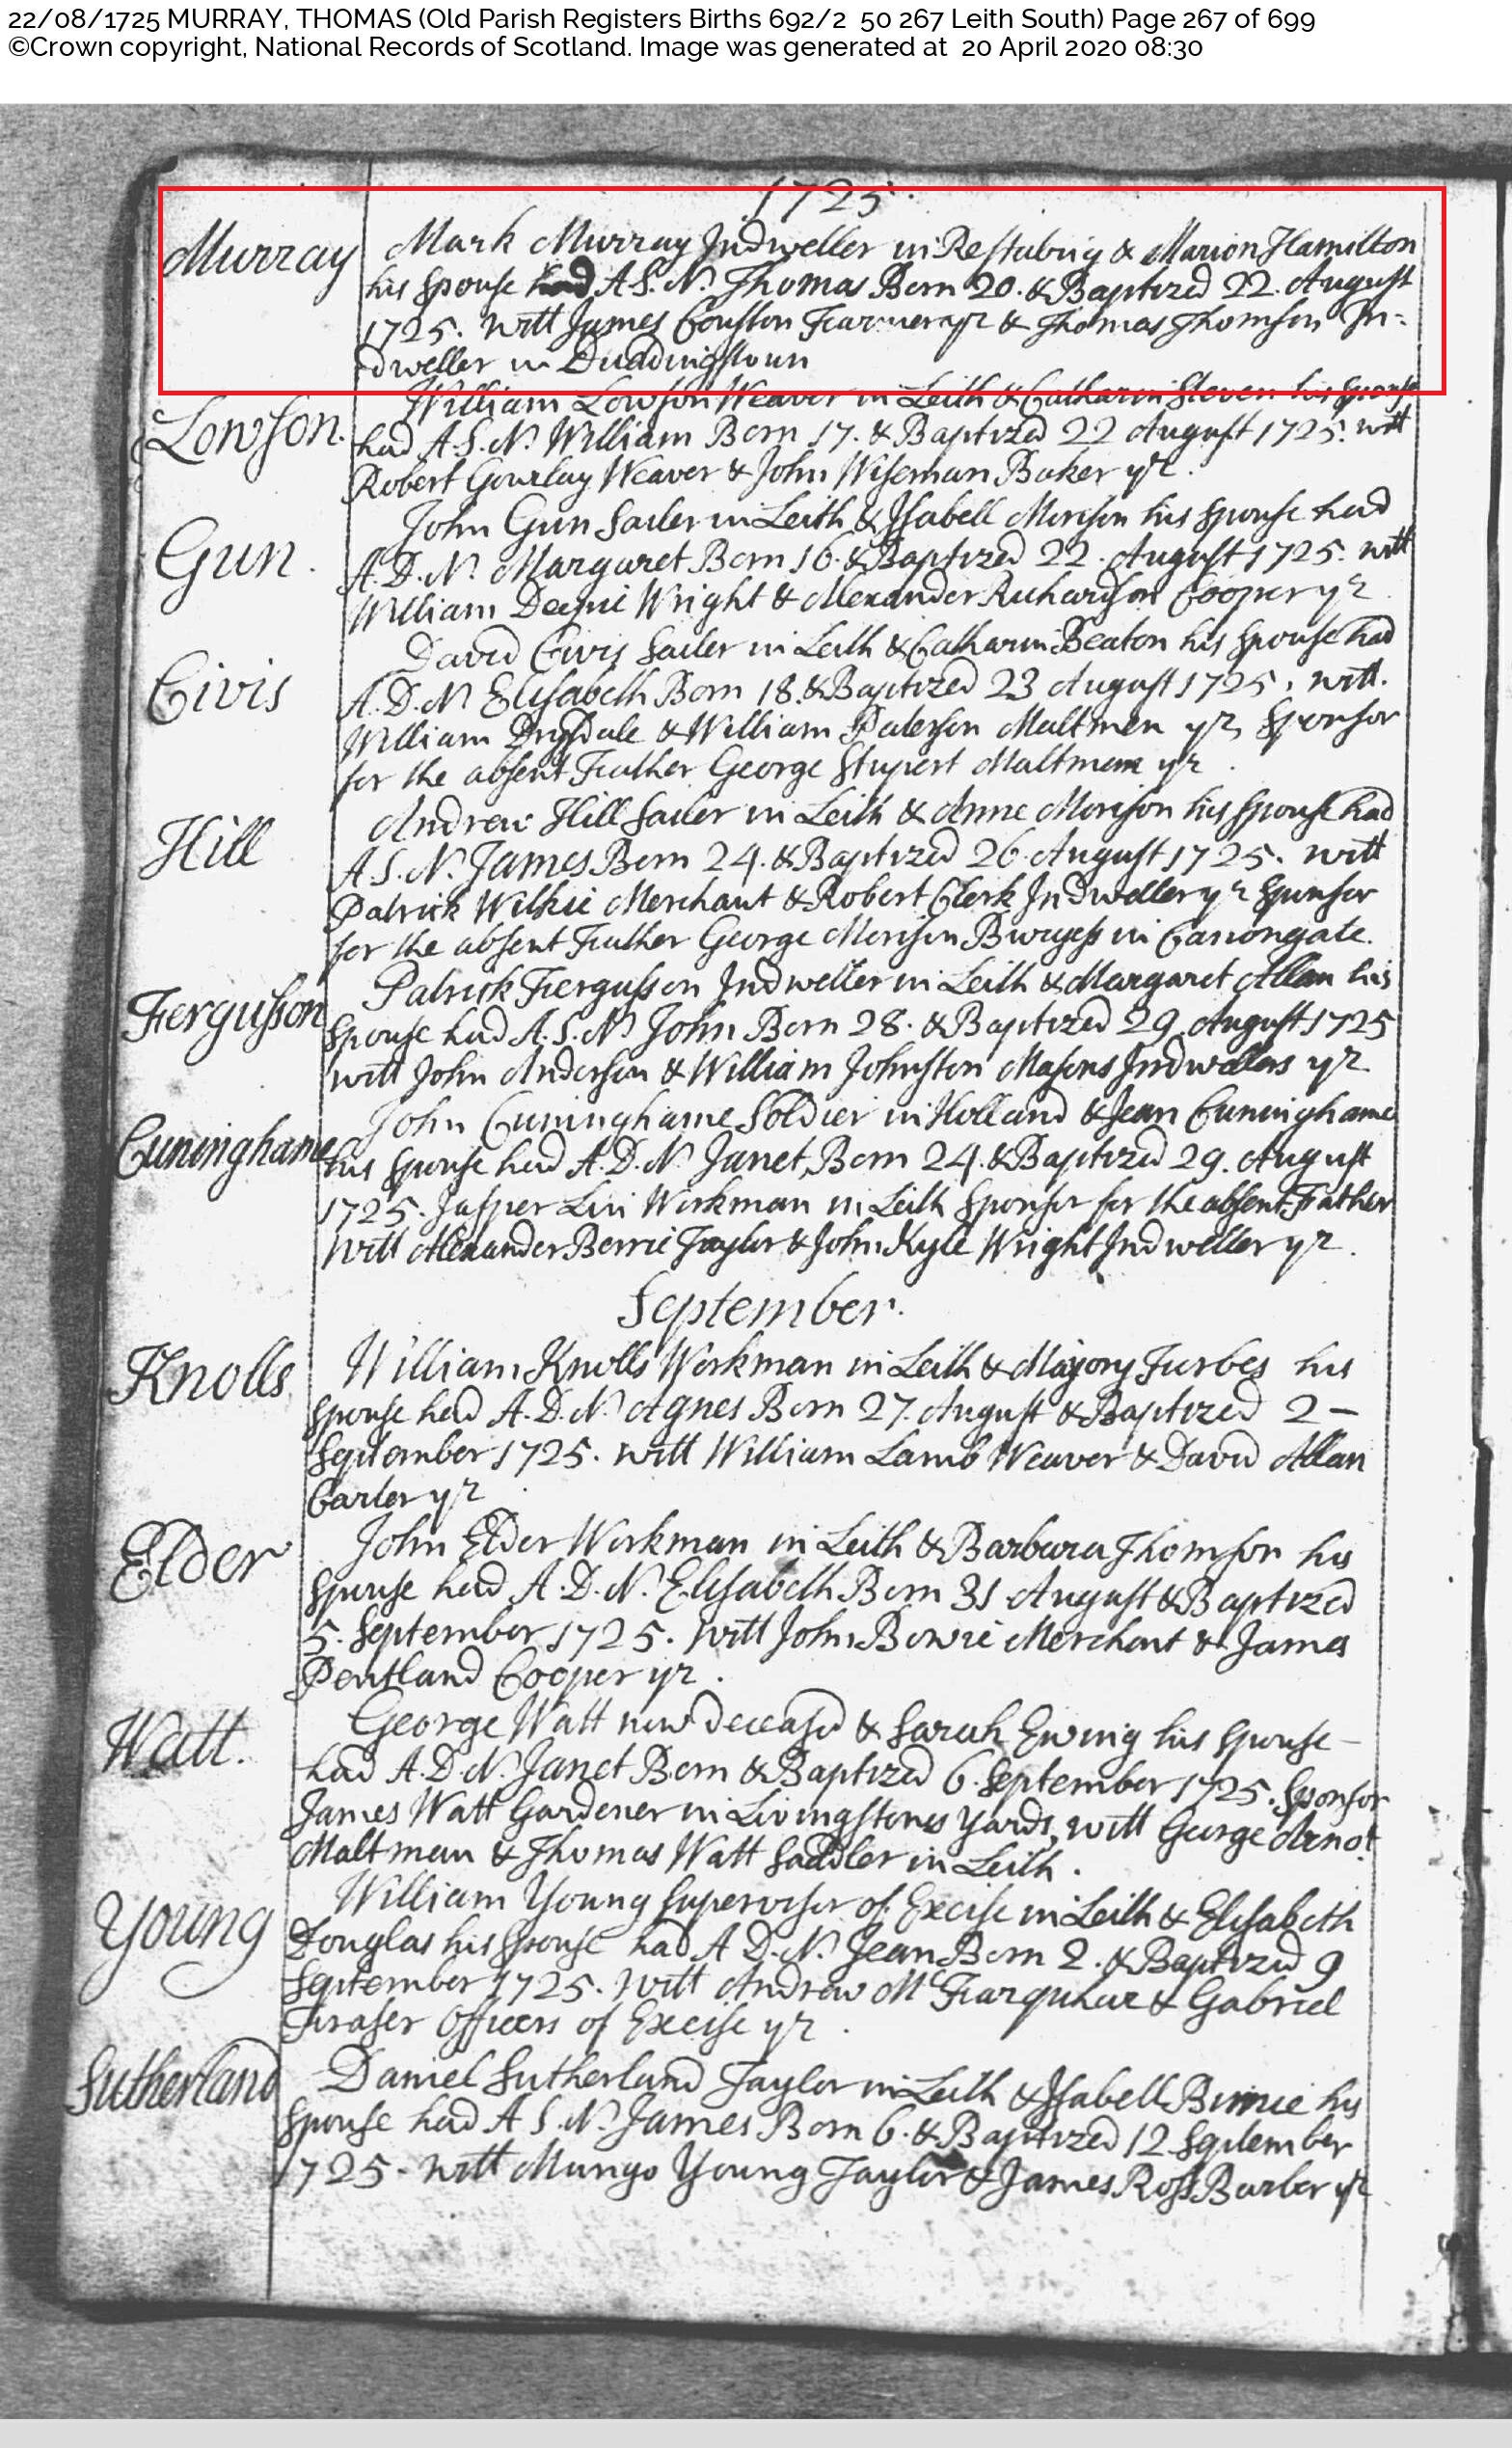 22/08/1725 MURRAY, THOMAS (Old Parish Registers Births 692/2 50 267 Leith South) Page 267 of 699
©Crown copyright, National Records of Scotland. Image was generated at 20 April 2020 08:30
1725.
Murray Mark Murray Indweller in Restalrig & Marion Hamilton
his spouse had A.S.N. Thomas Born 20. & Baptized 22. August
1725. Witt James Couston Farmer yr & Thomas Thomson In-
dweller in Duddingstoun
Lowson. William Lowson Weaver in Leith & Catharin Steven his spouse
had A.S.N. William Born 17. & Baptized 22 August 1725. witt
Robert Gourlay Weaver & John Wiseman Baker yr.
Gun. John Gun Sailer in Leith & Isabell Morison his spouse had
A.D.N. Margaret Born 16. & Baptized 22. August 1725. witt
William Wright & Alexander Richardson Cooper yr
Civis David Civis Sailer in Leith & Catharin Beaton his spouse had
A.D.N Elisabeth Born 18. & Baptized 23 August 1725. witt.
William Drysdale & William Paterson Maltmen yr, Sponsor
for the absent Father George Maltman yr.
Hill Andrew Hill Sailer in Leith & Anne Morison his spouse had
A.S.N. James Born 24. & Baptized 26. August 1725. witt
Patrick Wilkie Merchant & Robert Clerk Indweller yr Sponsor
for the absent Father George Morison Burgess in Canongate.
Fergusson Patrick Fergusson Indweller in Leith & Margaret Allan his
spouse had A.S.N. John Born 28. & Baptized 29. August 1725
witt John Anderson & William Johnston Masons Indwellers yr
Cuninghame John Cuninghame Soldier in Holland & Jean Cuninghame
his spouse had A.D.N. Janet Born 24. & Baptized 29. August
1725. Jasper Workman in Leith Sponsor for the absent Father
Witt Alexander Berrie Taylor & John Kyle Wright Indweller yr.
September.
Knolls William Knolls Workman in Leith & Majory Furbes his
spouse had A.D.N. Agnes Born 27. August & Baptized 2 –
September 1725. witt William Lamb Weaver & David Allan
Carter yr
Elder John Elder Workman in Leith & Barbara Thomson his
spouse had A.D.N. Elisabeth Born 31 August & Baptized
5. September 1725. Witt John Bowie Merchant & James
Pentland Cooper yr.
Watt. George Watt now deceased & Sarah Ewing his spouse –
had A.D.N. Janet Born & Baptized 6. September 1725. Sponsor
James Watt Gardener in Livingstones Yards, witt George Arnot
Maltman & Thomas Watt Saddler in Leith.
Young William Young Supervisor of Excise in Leith & Elisabeth
Douglas his spouse had A D.N. Jean Born 2. & Baptized 9
September 1725. Witt Andrew McFarquhar & Gabriel
Fraser Officers of Excise yr.
Sutherland Daniel Sutherland Taylor in Leith & Isabell Binnie his
spouse had A S.N. James Born 6. & Baptized 12 September
1725. Witt Mungo Young Taylor & James Ross Barber yr